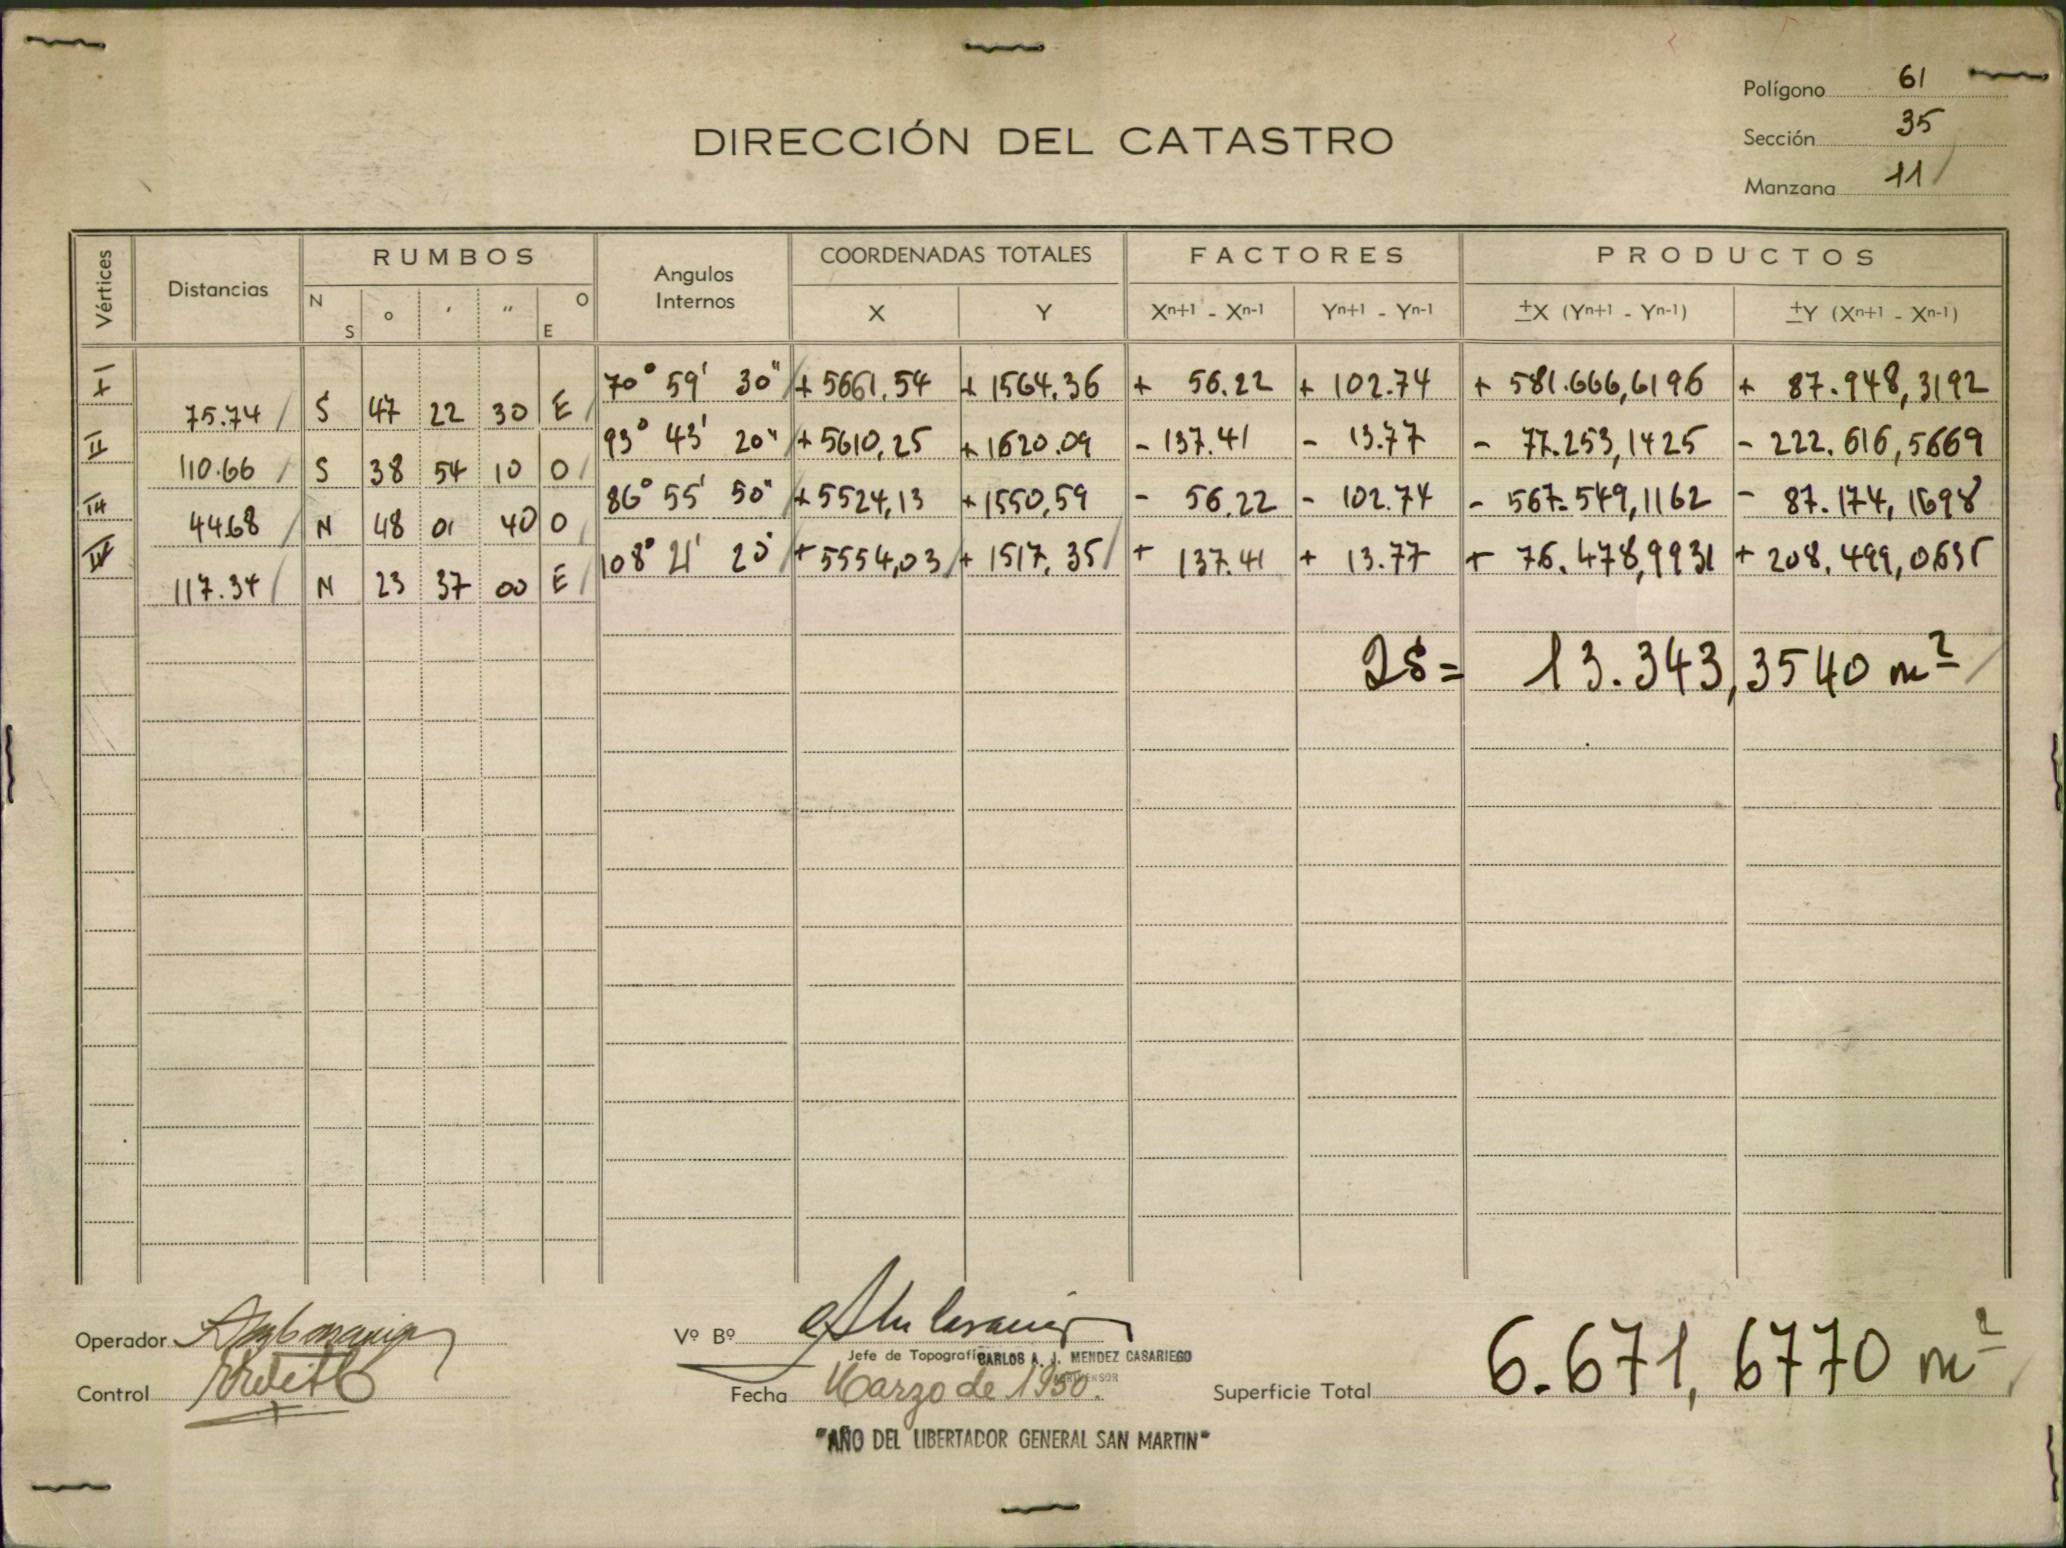 Polígono 61
DIRECCIÓN DEL CATASTRO
Sección 35
Manzana 11
Vértices Distancias RUMBOS Angulos Internos COORDENADAS TOTALES FACTORES PRODUCTOS
N S ° ' " E O X Y Xn+1 - Xn-1 Yn+1 - Yn-1 ±X (Yn+1 - Yn-1) ±Y (Xn+1 - Xn-1)
+I 70° 59' 30" + 5661,54 + 1564,36 + 56.22 + 102.74 + 581.666,6196 + 87.948,3192
75.74 S 47 22 30 E
II 93° 43' 20" + 5610,25 + 1620.09 - 137.41 - 13.77 - 77.253,1425 - 222.616,5669
110.66 S 38 54 10 O
III 86° 55' 50" + 5524,13 + 1550,59 - 56.22 - 102.74 - 567.549,1162 - 87.174,1698
44.68 N 48 01 40 O
IV 108° 21' 20" + 5554,03 + 1517,35 + 137.41 + 13.77 + 76.478,9931 + 208.499,0635
117.34 N 23 37 00 E
2S = 13.343,3540 m²
Operador
Vº Bº
Jefe de Topografía CARLOS A. J. MENDEZ CASARIEGO
Control
Fecha Marzo de 1950.
Superficie Total 6.671,6770 m²
"AÑO DEL LIBERTADOR GENERAL SAN MARTIN"